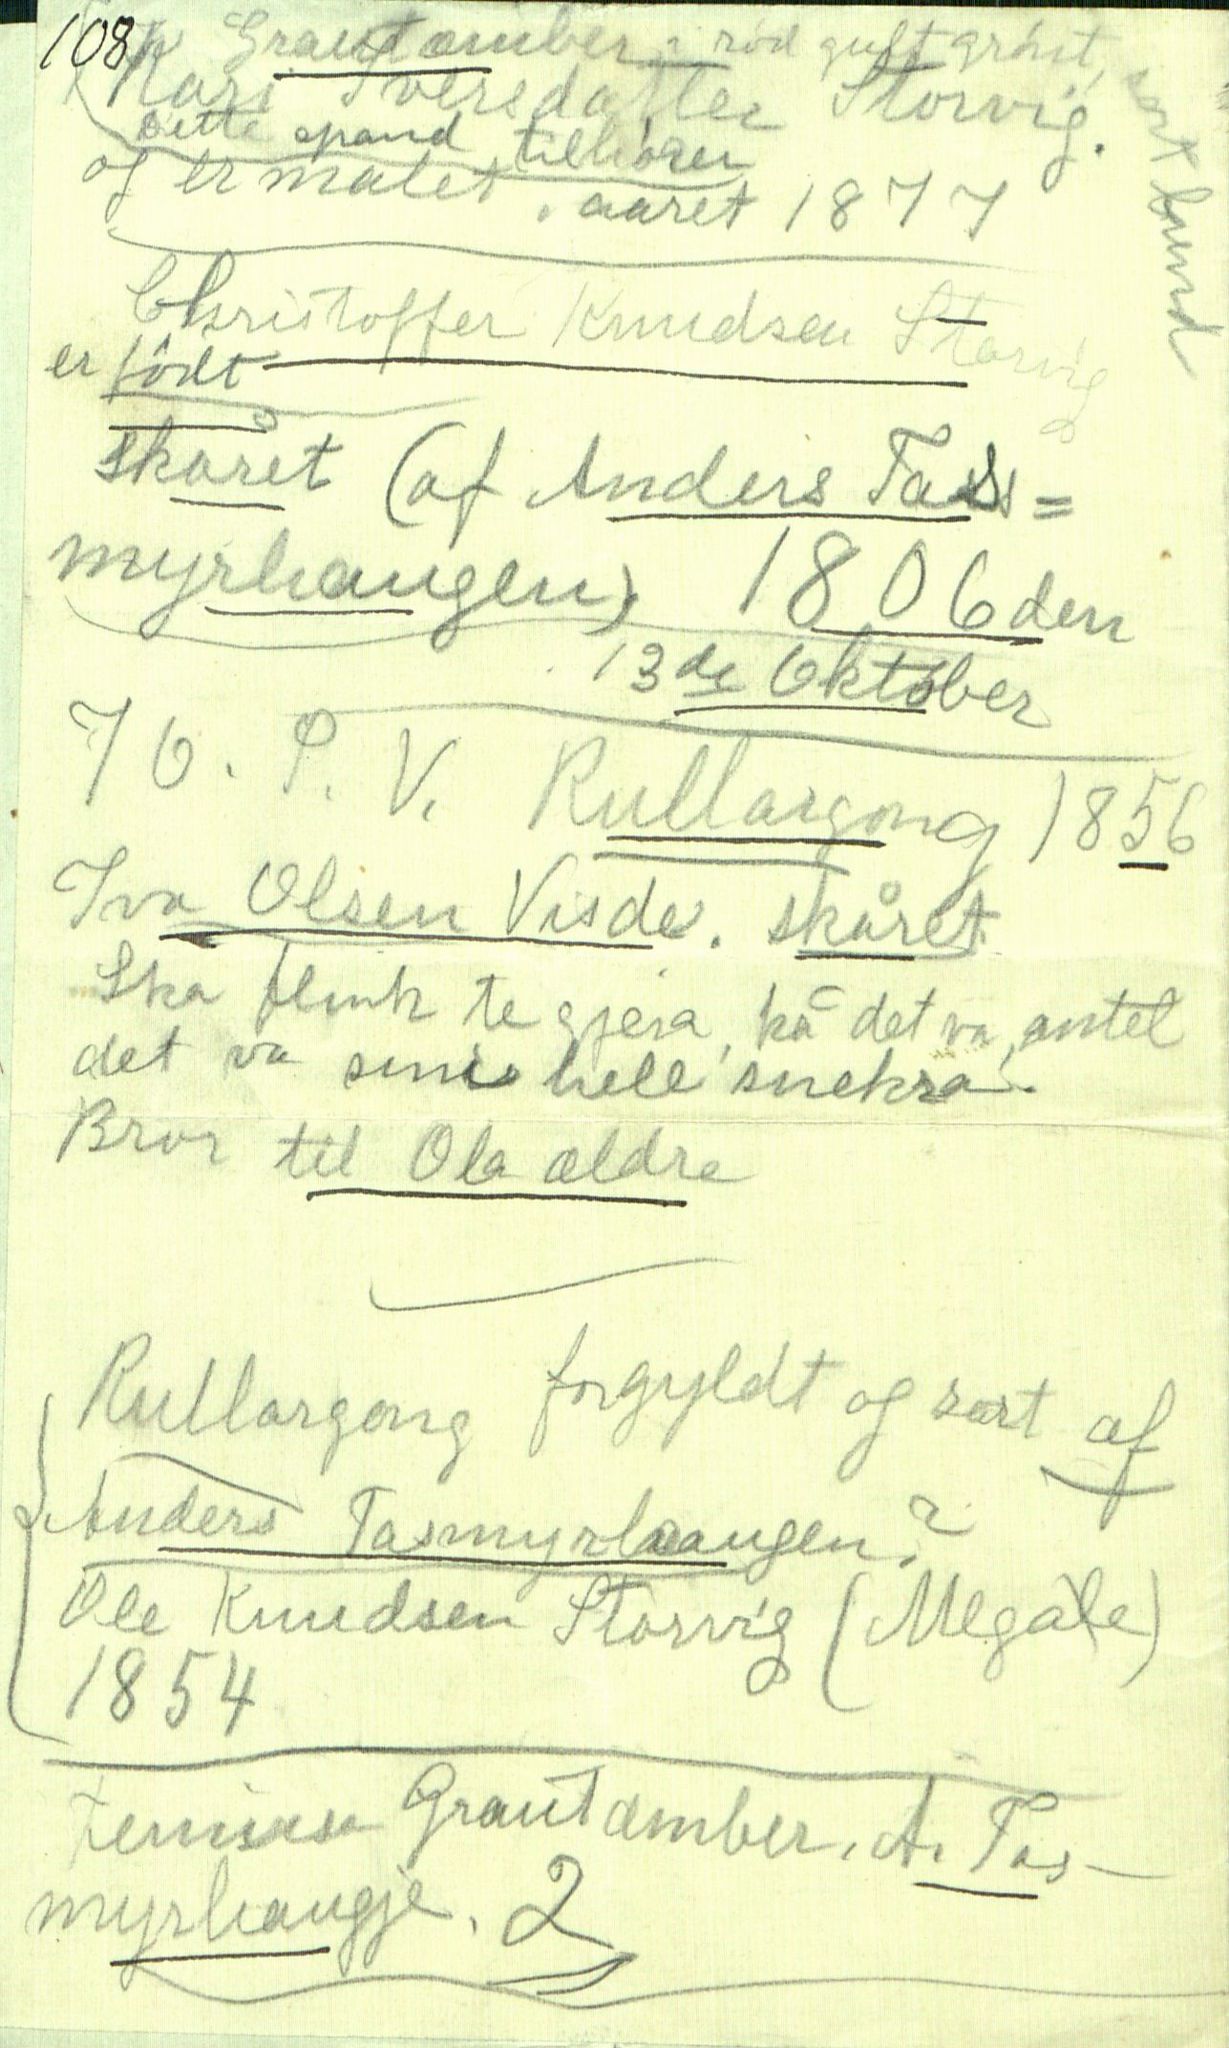 108
Grautamber i rød gult grönt, sort bund
Kari Iversdatter Storvig.
Dette spand tilhører
og er malet i aaret 1877
Christoffer Knudsen Storvig
er födt
skåret (af Anders Tass=
myrhaugen) 1806 den
13de Oktober
I O. P. V. Rullargong 1856
Iva Olsen Visde. skåret
Ska flink te gjera, kå det va, antel
det va smie hell snekra.
Bror til Ola ældre
Rullargong forgyldt og sort af
Anders Tasmyrhaugen?
Ole Knudsen Storvig (Megåle)
1854
Grautamber. A. Tas-
myrhaugje. 2